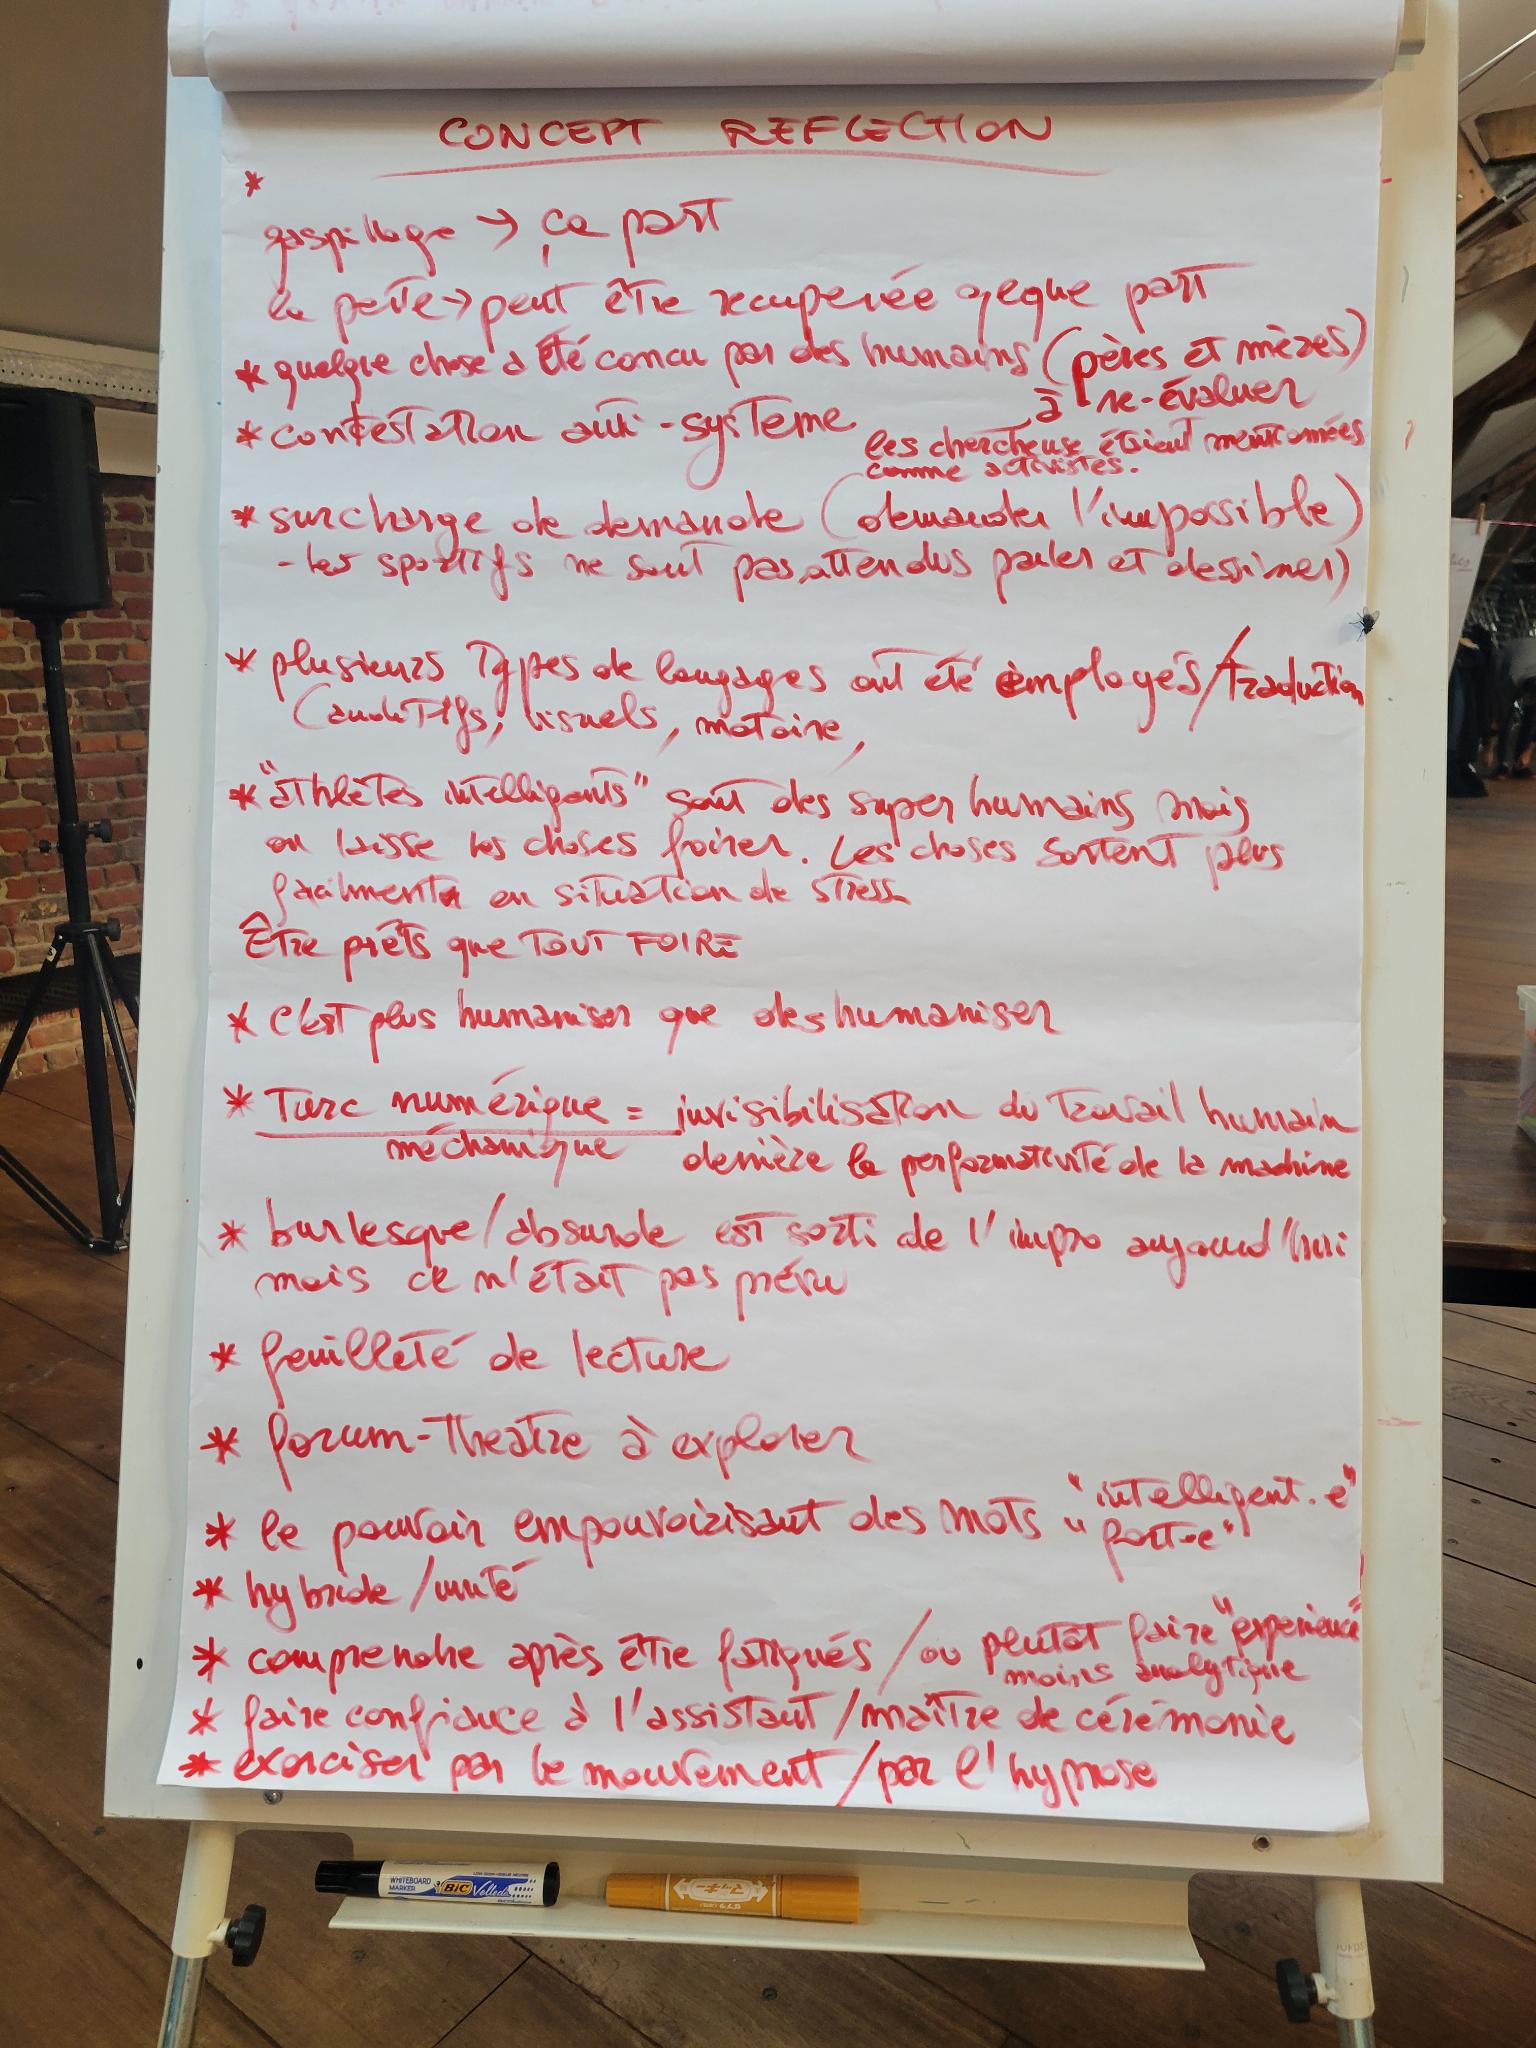 CONCEPT REFLECTION
*
gaspillage → ça part
la perte → peut être recuperée qqque part
* quelque chose a été concu par des humains (pères et mères)
à re-évaluer
* contestation anti-systeme
les chercheuse étaient mentionnées
comme activistes.
* surcharge de demande (demander l'impossible)
- les sportifs ne sont pas attendus parler et dessiner)
* plusieurs types de langages ont été employés/traduction
(auditifs, visuels, motoire,
* "athlètes intelligents" sont des super humains mais
on laisse les choses foirer. Les choses sortent plus
facilment en situation de stress
Être prêts que TOUT FOIRE
* C'est plus humaniser que deshumaniser
* Turc numérique = invisibilisation du travail humain
méchanique derrière la performativité de la machine
* burlesque/absurde est sorti de l'impro aujourd'hui
mais ce n'était pas prévu
* feuilleté de lecture
* forum-theatre à explorer
* le pouvoir empouvoirisant des mots "intelligent.e"
"fort-e"
* hybride/unité
* comprendre après être fatigués / ou plutôt faire "experience"
moins analytique
* faire confiance à l'assistant/maître de cérémonie
* exorciser par le mouvement/par l'hypnose
WHITEBOARD
MARKER
BIC
Velleda